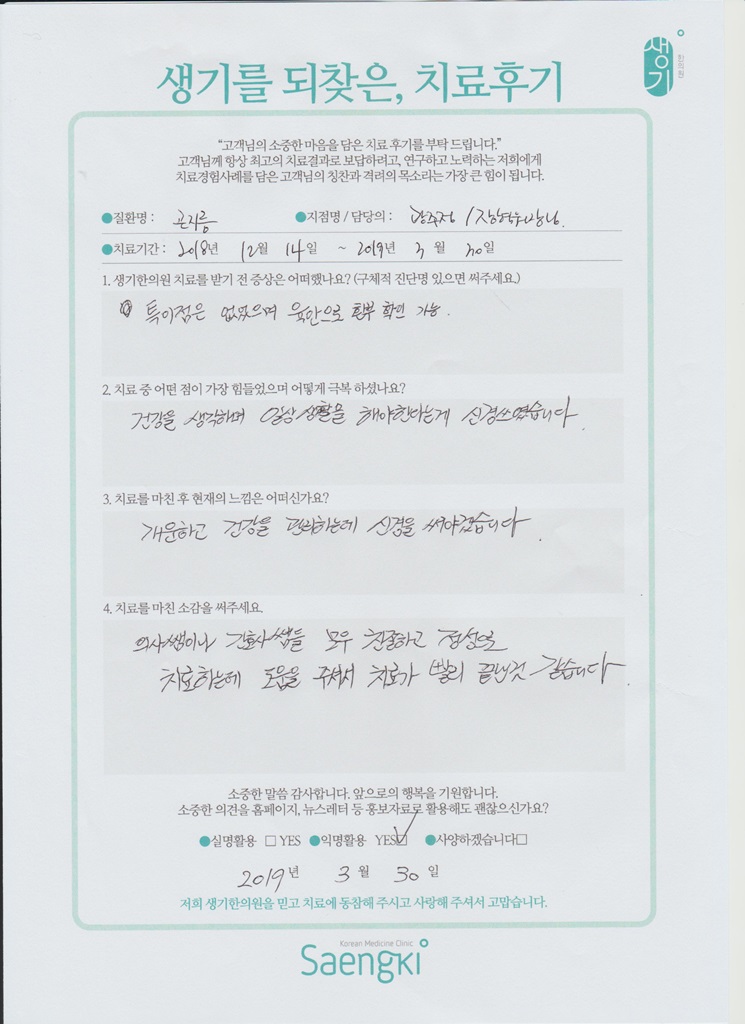 생기 한의원
생기를 되찾은, 치료후기
“고객님의 소중한 마음을 담은 치료 후기를 부탁 드립니다.”
고객님께 항상 최고의 치료결과로 보답하려고, 연구하고 노력하는 저희에게
치료경험사례를 담은 고객님의 칭찬과 격려의 목소리는 가장 큰 힘이 됩니다.
●질환명 : 곤지름 ●지점명 / 담당의 : 광주점 /
●치료기간 : 2018년 12월 14일 ~ 2019년 3월 30일
1. 생기한의원 치료를 받기 전 증상은 어떠했나요? (구체적 진단명 있으면 써주세요.)
특이점은 없었으며 육안으로 환부 확인 가능.
2. 치료 중 어떤 점이 가장 힘들었으며 어떻게 극복 하셨나요?
건강을 생각하며 일상생활을 해야한다는게 신경쓰였습니다.
3. 치료를 마친 후 현재의 느낌은 어떠신가요?
개운하고 건강을 관리하는데 신경을 써야겠습니다.
4. 치료를 마친 소감을 써주세요.
의사쌤이나 간호사쌤들 모두 친절하고 정성으로
치료하는데 도움을 주셔서 치료가 빨리 끝난것 같습니다.
소중한 말씀 감사합니다. 앞으로의 행복을 기원합니다.
소중한 의견을 홈페이지, 뉴스레터 등 홍보자료로 활용해도 괜찮으신가요?
●실명활용 □ YES ●익명활용 YES☑ ●사양하겠습니다□
2019년 3월 30일
저희 생기한의원을 믿고 치료에 동참해 주시고 사랑해 주셔서 고맙습니다.
Korean Medicine Clinic
Saengki